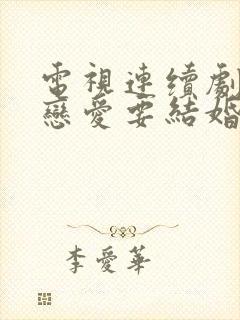 電視連續劇
戀愛要結婚
李愛華